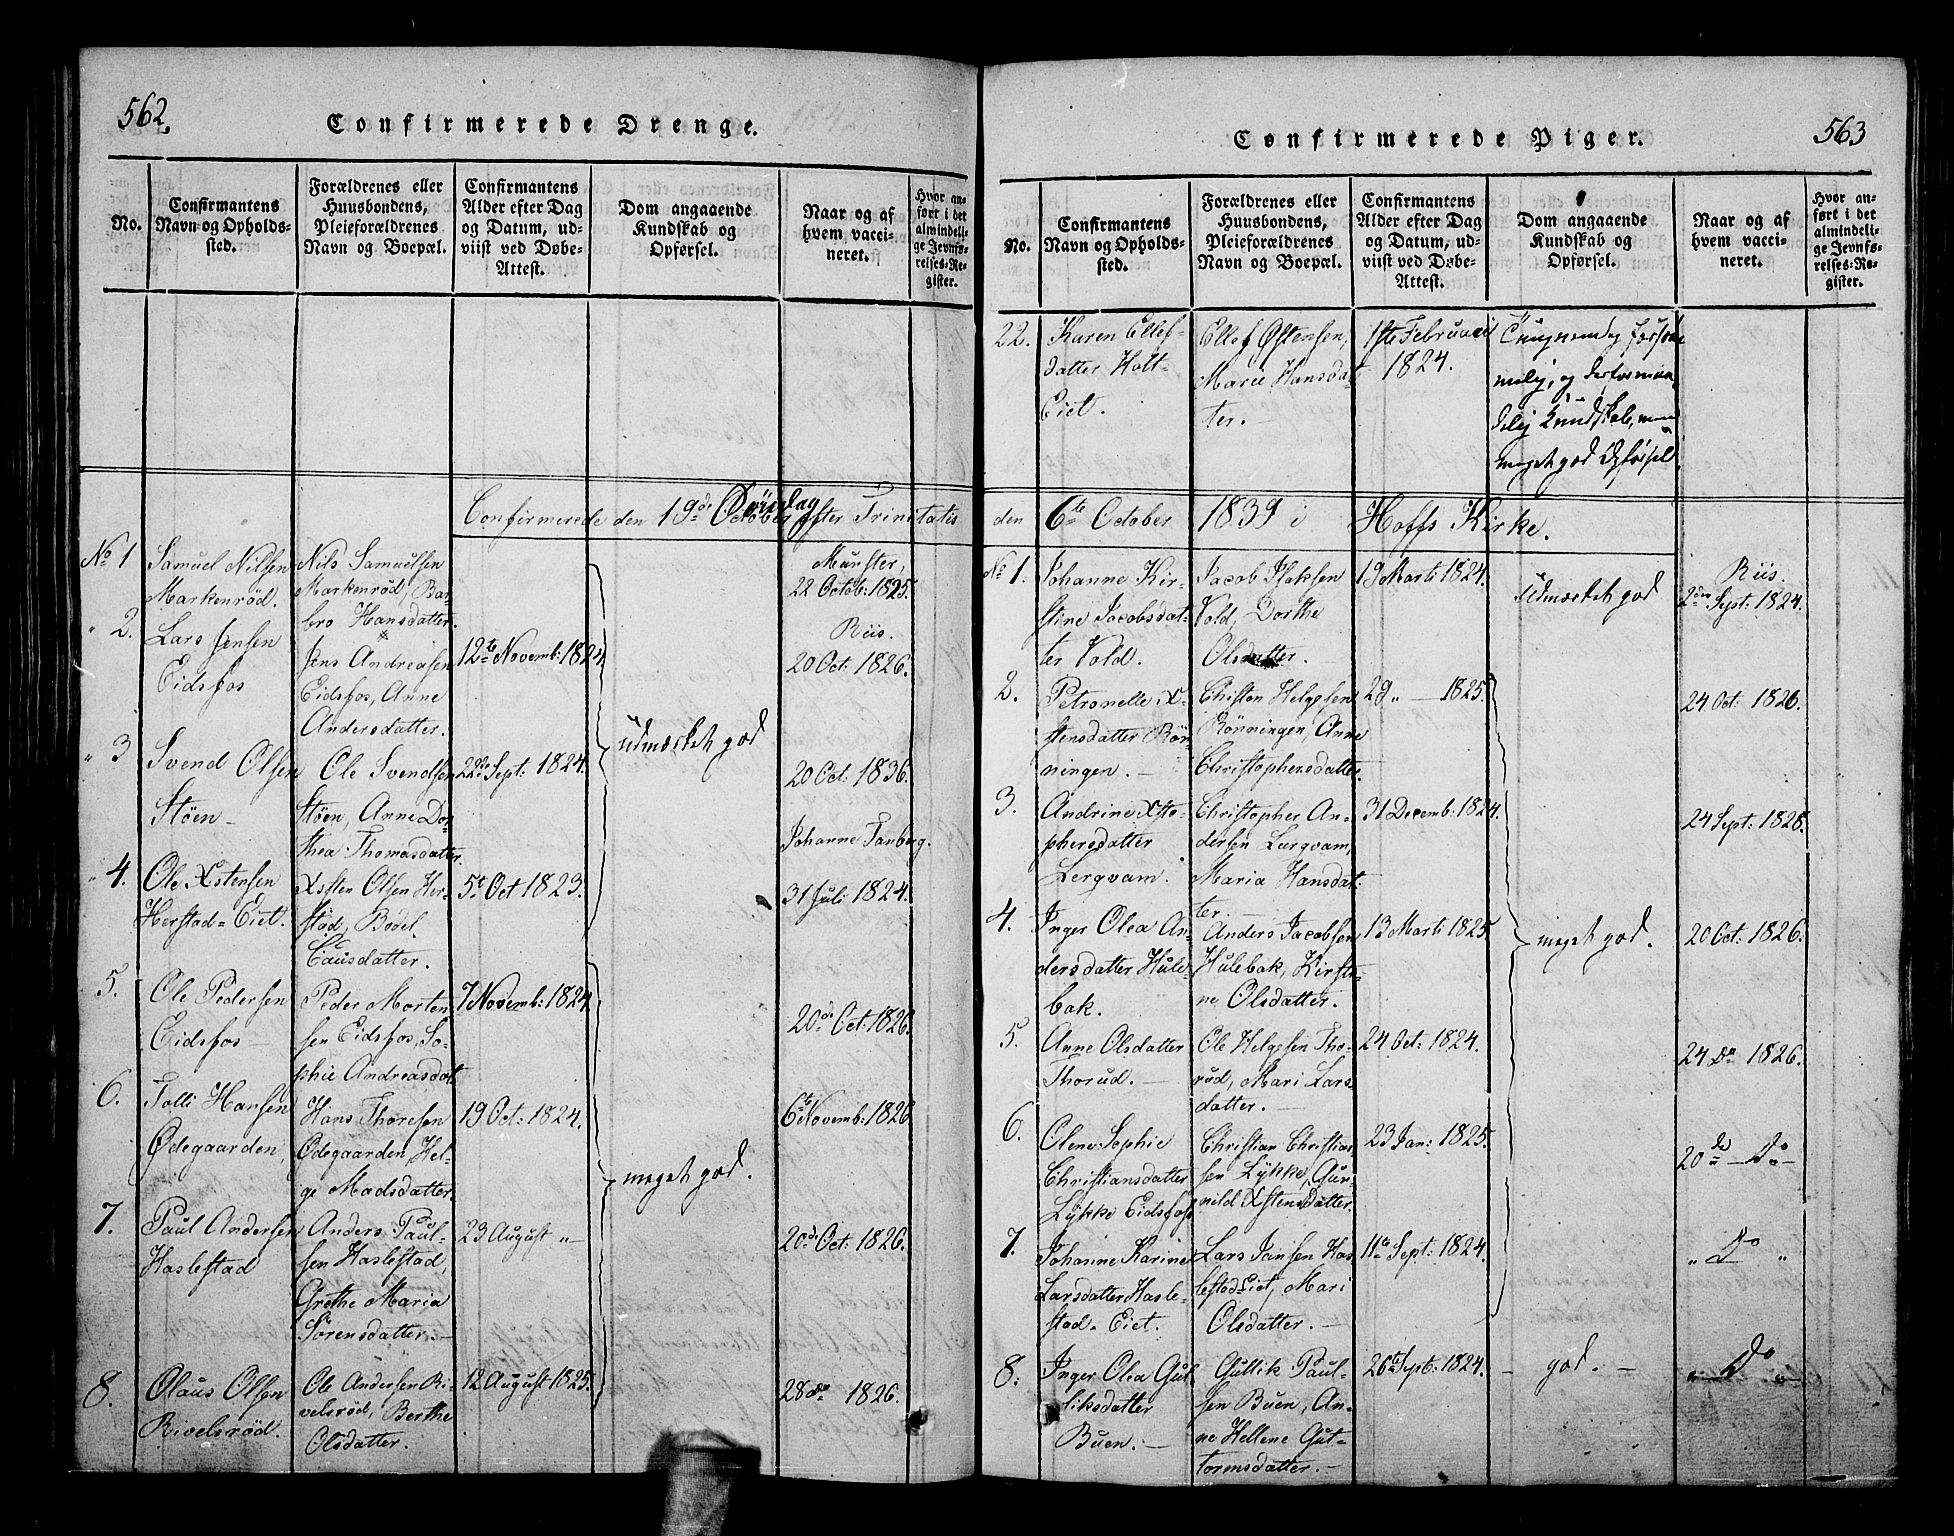 562.
Confirmerede Drenge.
No.
Confirmantens
Navn og Opholds-
sted.
Forældrenes eller
Huusbondens,
Pleieforældrenes
Navn og Boepæl.
Confirmantens
Alder efter Dag
og Datum, ud-
viist ved Døbe-
Attest.
Dom angaaende
Kundskab og
Opførsel.
Naar og af
hvem vacci-
neret.
Hvor an-
ført i det
almindeli-
ge Jevnfø-
relses-Re-
gister.
Confirmerede den 19de Søndag efter Trinitatis
No 1
Samuel Nilsen
Markenrød.
Nils Samuelsen
Markenrød, Bar-
bro Hansdatter.
Munster,
22 Octob: 1825.
" 2.
Lars Jensen
Eidsfos
Jens Andreasen
Eidsfos, Anne
Andersdatter.
12te Novemb: 1824.
Riis.
20 Oct: 1826.
" 3
Svend Olsen
Støen -
Ole Svendsen
Støen, Anne Do-
thea Thomasdatter.
22de Sept: 1824.
udmærket god
20 Oct: 1836.
" 4.
Ole Xstensen
Herstad=Eiet.
Xsten Olsen Her-
stad, Bodel
Clausdatter.
5te Oct 1823.
Johanne Tanberg.
31 Juli 1824.
5.
Ole Pedersen
Eidsfos -
Peder Morten
sen Eidsfos, So-
phie Andreasdat
7 Novemb: 1824.
20de Oct: 1826.
6.
Tolli Hansen
Ødegaarden,
Hans Thoresen
Ødegaarden Hel-
ge Madsdatter.
19 Oct: 1824.
meget god.
6te Novemb: 1826
7.
Paul Andersen
Haslestad
Anders Paul-
sen Haslestad,
Grethe Maria
Sørensdatter. -
23 August " -
20de Oct: 1826.
8.
Olaus Olsen
Rivelsrød.
Ole Andersen Ri-
velsrød, Berthe
Olsdatter.
12 August 1825.
28 do 1826.
563
Confirmerede Piger.
No.
Confirmantens
Navn og Opholds-
sted.
Forældrenes eller
Huusbondens,
Pleieforældrenes
Navn og Boepæl.
Confirmantens
Alder efter Dag
og Datum, ud-
viist ved Døbe-
Attest.
Dom angaaende
Kundskab og
Opførsel.
Naar og af
hvem vacci-
neret.
Hvor an-
ført i det
almindeli-
ge Jevnfø-
relses-Re-
gister.
22.
Karen Ellef-
datter Holt-
Eiet.
Ellef Østensen,
Marie Hansdat
ter. -
1ste Februari
1824.
Kundskab, men
meget god Opførsel
den 6te October 1839 i Hoffs Kirke.
No 1.
Johanne Kir-
stine Jacobsdat-
ter Vold.
Jacob Isaksen
Vold, Dorthe
Olsdatter.
19 Marti 1824.
udmærket god
Riis.
2den Sept: 1824.
2.
Petronelle X-
stensdatter Røn-
ningen. -
Christen Helgesen
Rønningen, Anne
Christophersdatter.
29 " - 1825.
24 Oct: 1826.
3.
Andrine Xsto-
phersdatter
Lergvam.
Christopher An-
dersen Lergvam,
Maria Hansdat-
ter. -
31 Decemb: 1824.
24 Sept: 1828.
4.
Inger Olea An-
dersdatter Hule-
bak.
Anders Jacobsen
Hulebak, Kirsti-
ne Olsdatter.
13 Marti 1825.
meget god.
20 Oct: 1826.
5.
Anne Olsdatter
Thorud. -
Ole Helgesen Tho-
rud, Mari Lars
datter. -
24 Oct: 1824.
24 do 1826.
6.
Olene Sophie
Christiansdatter
Lykke Eidsfos
Christian Christian
sen Lykke, Gun-
nild Xstensdatter.
23 Jan: 1825.
20de - do -
7.
Johanne Karine
Larsdatter Hasle-
stad=Eiet.
Lars Jansen Has-
lestad=Eiet, Mari
Olsdatter. -
11te Sept: 1824.
" do "
8.
Inger Olea Gul-
liksdatter
Buen. -
Gullik Paul-
sen Buen, An-
ne Hellene Gut-
tormsdatter. -
26te Sept: 1824.
- god. -
" do "